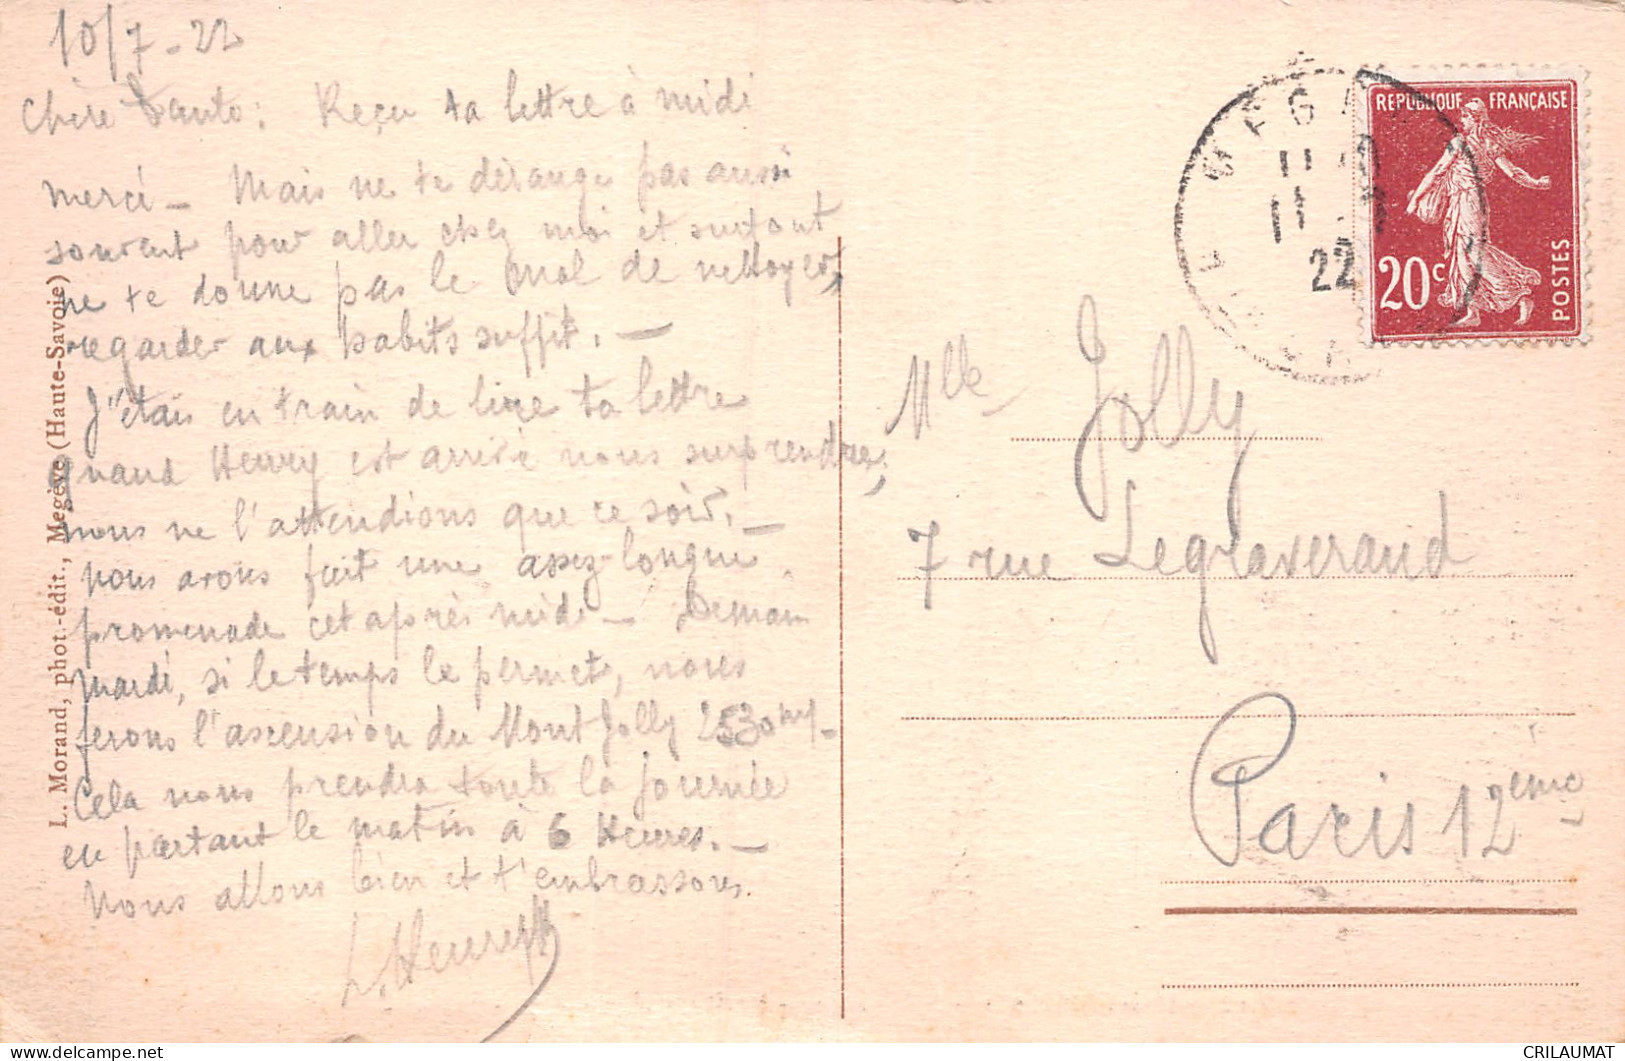 10/7-22
Chère Tante: Reçu ta lettre à midi
merci - Mais ne te dérange pas aussi
souvent pour aller chez moi et surtout
ne te donne pas le mal de nettoyer,
regarder aux habits suffit. -
J'étais en train de lire ta lettre
quand Henry est arrivé nous surprendre,
nous ne l'attendions que ce soir. -
nous avons fait une assez longue
promenade cet après midi - Demain
mardi, si le temps le permet, nous
ferons l'ascension du Mont Jolly 2530 m -
Cela nous prendra toute la journée
en partant le matin à 6 Heures. -
Nous allons bien et t'embrassons.
L. Morand, phot.-édit., Megève (Haute-Savoie)
REPUBLIQUE FRANÇAISE
20c
POSTES
MEGÈVE
11
22
Mlle Jolly
7 rue Legraverand
Paris 12eme
CRILAUMAT